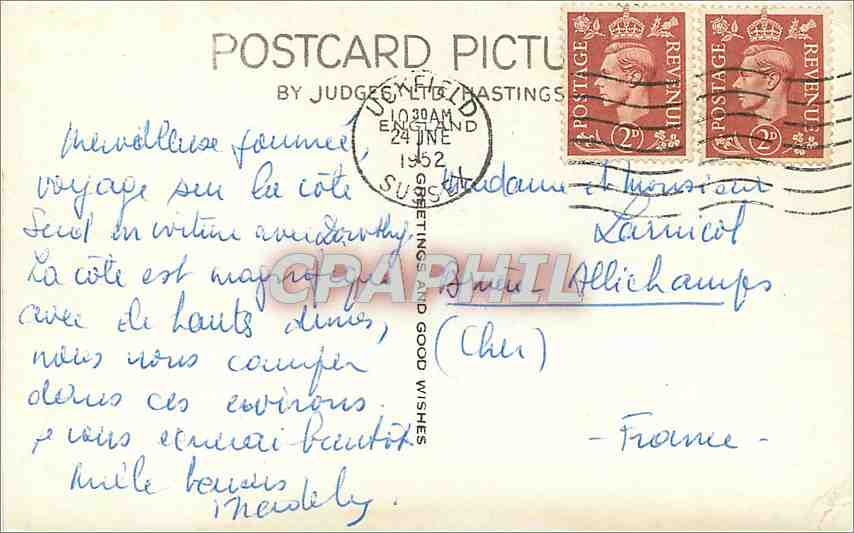 POSTCARD PICTU
BY JUDGES LTD HASTINGS
UCKFIELD
10 30 AM
ENGLAND
24 JNE
1952
SUSSEX
POSTAGE REVENUE
2D
POSTAGE REVENUE
2D
Merveilleuse journée,
voyage sur la côte
Sud en voiture avec Dorothy.
La côte est magnifique
avec de hautes dunes,
nous nous camper
dans ces environs.
je vous écrirai bientôt
Mille baisers
GREETINGS AND GOOD WISHES
Madame et Monsieur
Larnicol
Allichamps
(Cher)
- France -
CPAPHIL